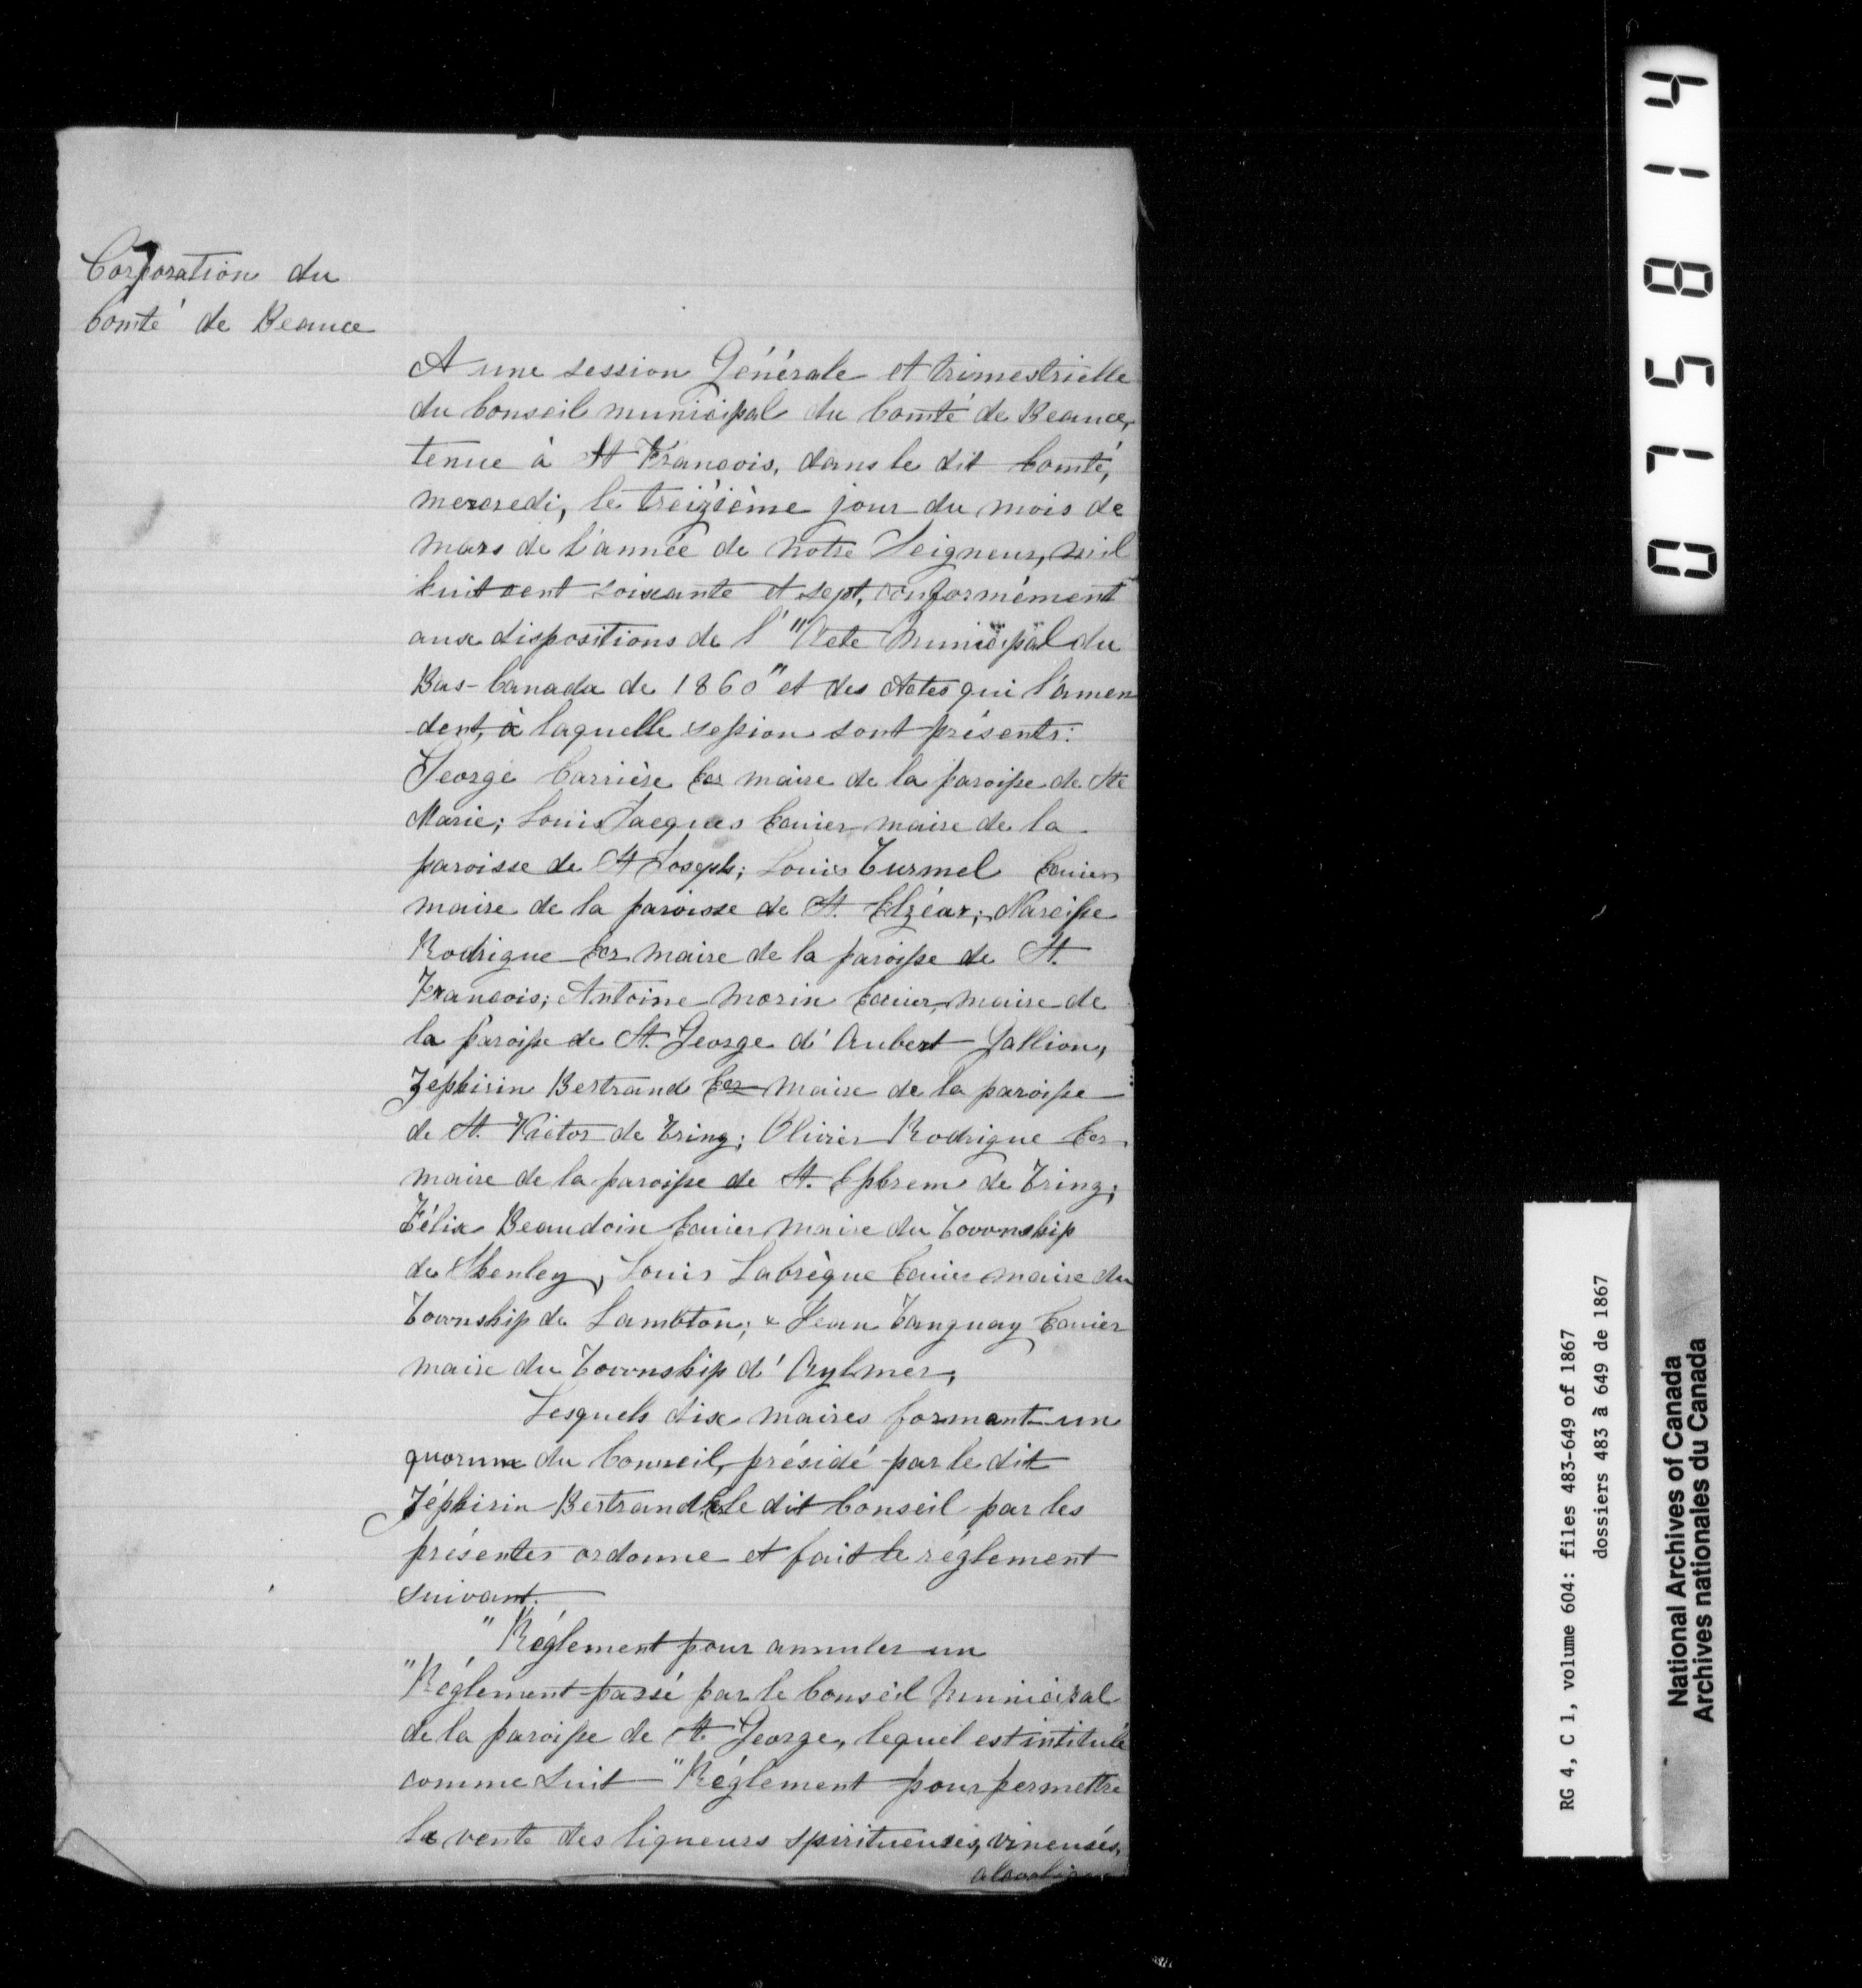 Corporation du
Comté de Beauce
A une session Générale et trimestrielle
du Conseil municipal du Comté de Beauce,
tenue à St François, dans le dit Comté,
mercredi, le treizième jour du mois de
mars de l'année de notre Seigneur, mil
huit cent soixante et sept, conformément
aux dispositions de l' "Acte Municipal du
Bas-Canada de 1860" et des Actes qui l'amen
dent, à laquelle session sont présents:
George Carrière Ecr maire de la paroisse de Ste
Marie; Louis Jacques Ecuier maire de la
paroisse de St Joseph; Louis Turmel Ecuier
maire de la paroisse de St. Elzéar; Narcisse
Rodrigue Ecr maire de la paroisse de St.
François; Antoine Morin Ecuier, maire de
la paroisse de St. George d'Aubert-Gallion,
Zéphirin Bertrand Ecr maire de la paroisse
de St. Victor de Tring; Olivier Rodrigue Ecr.
maire de la paroisse de St. Ephrem de Tring;
Félix Beaudoin Ecuier maire du Township
de Shenley, Louis Labrèque Ecuier maire du
Township de Lambton; & Jean Tanguay Ecuier
maire du Township d'Aylmer,
Lesquels dix maires formant un
quorum du Conseil, présidé par le dit
Zéphirin Bertrand Ecr le dit Conseil par les
présentes ordonne et fait le réglement
suivant.
"Réglement pour annuler un
"Réglement passé par le Conseil Municipal
de la paroisse de St George, lequel est intitulé
comme suit "Réglement pour permettre
la vente des liqueurs spiritueuses, vineuses,
075814
RG 4, C 1, volume 604: files 483-649 of 1867
dossiers 483 à 649 de 1867
National Archives of Canada
Archives nationales du Canada